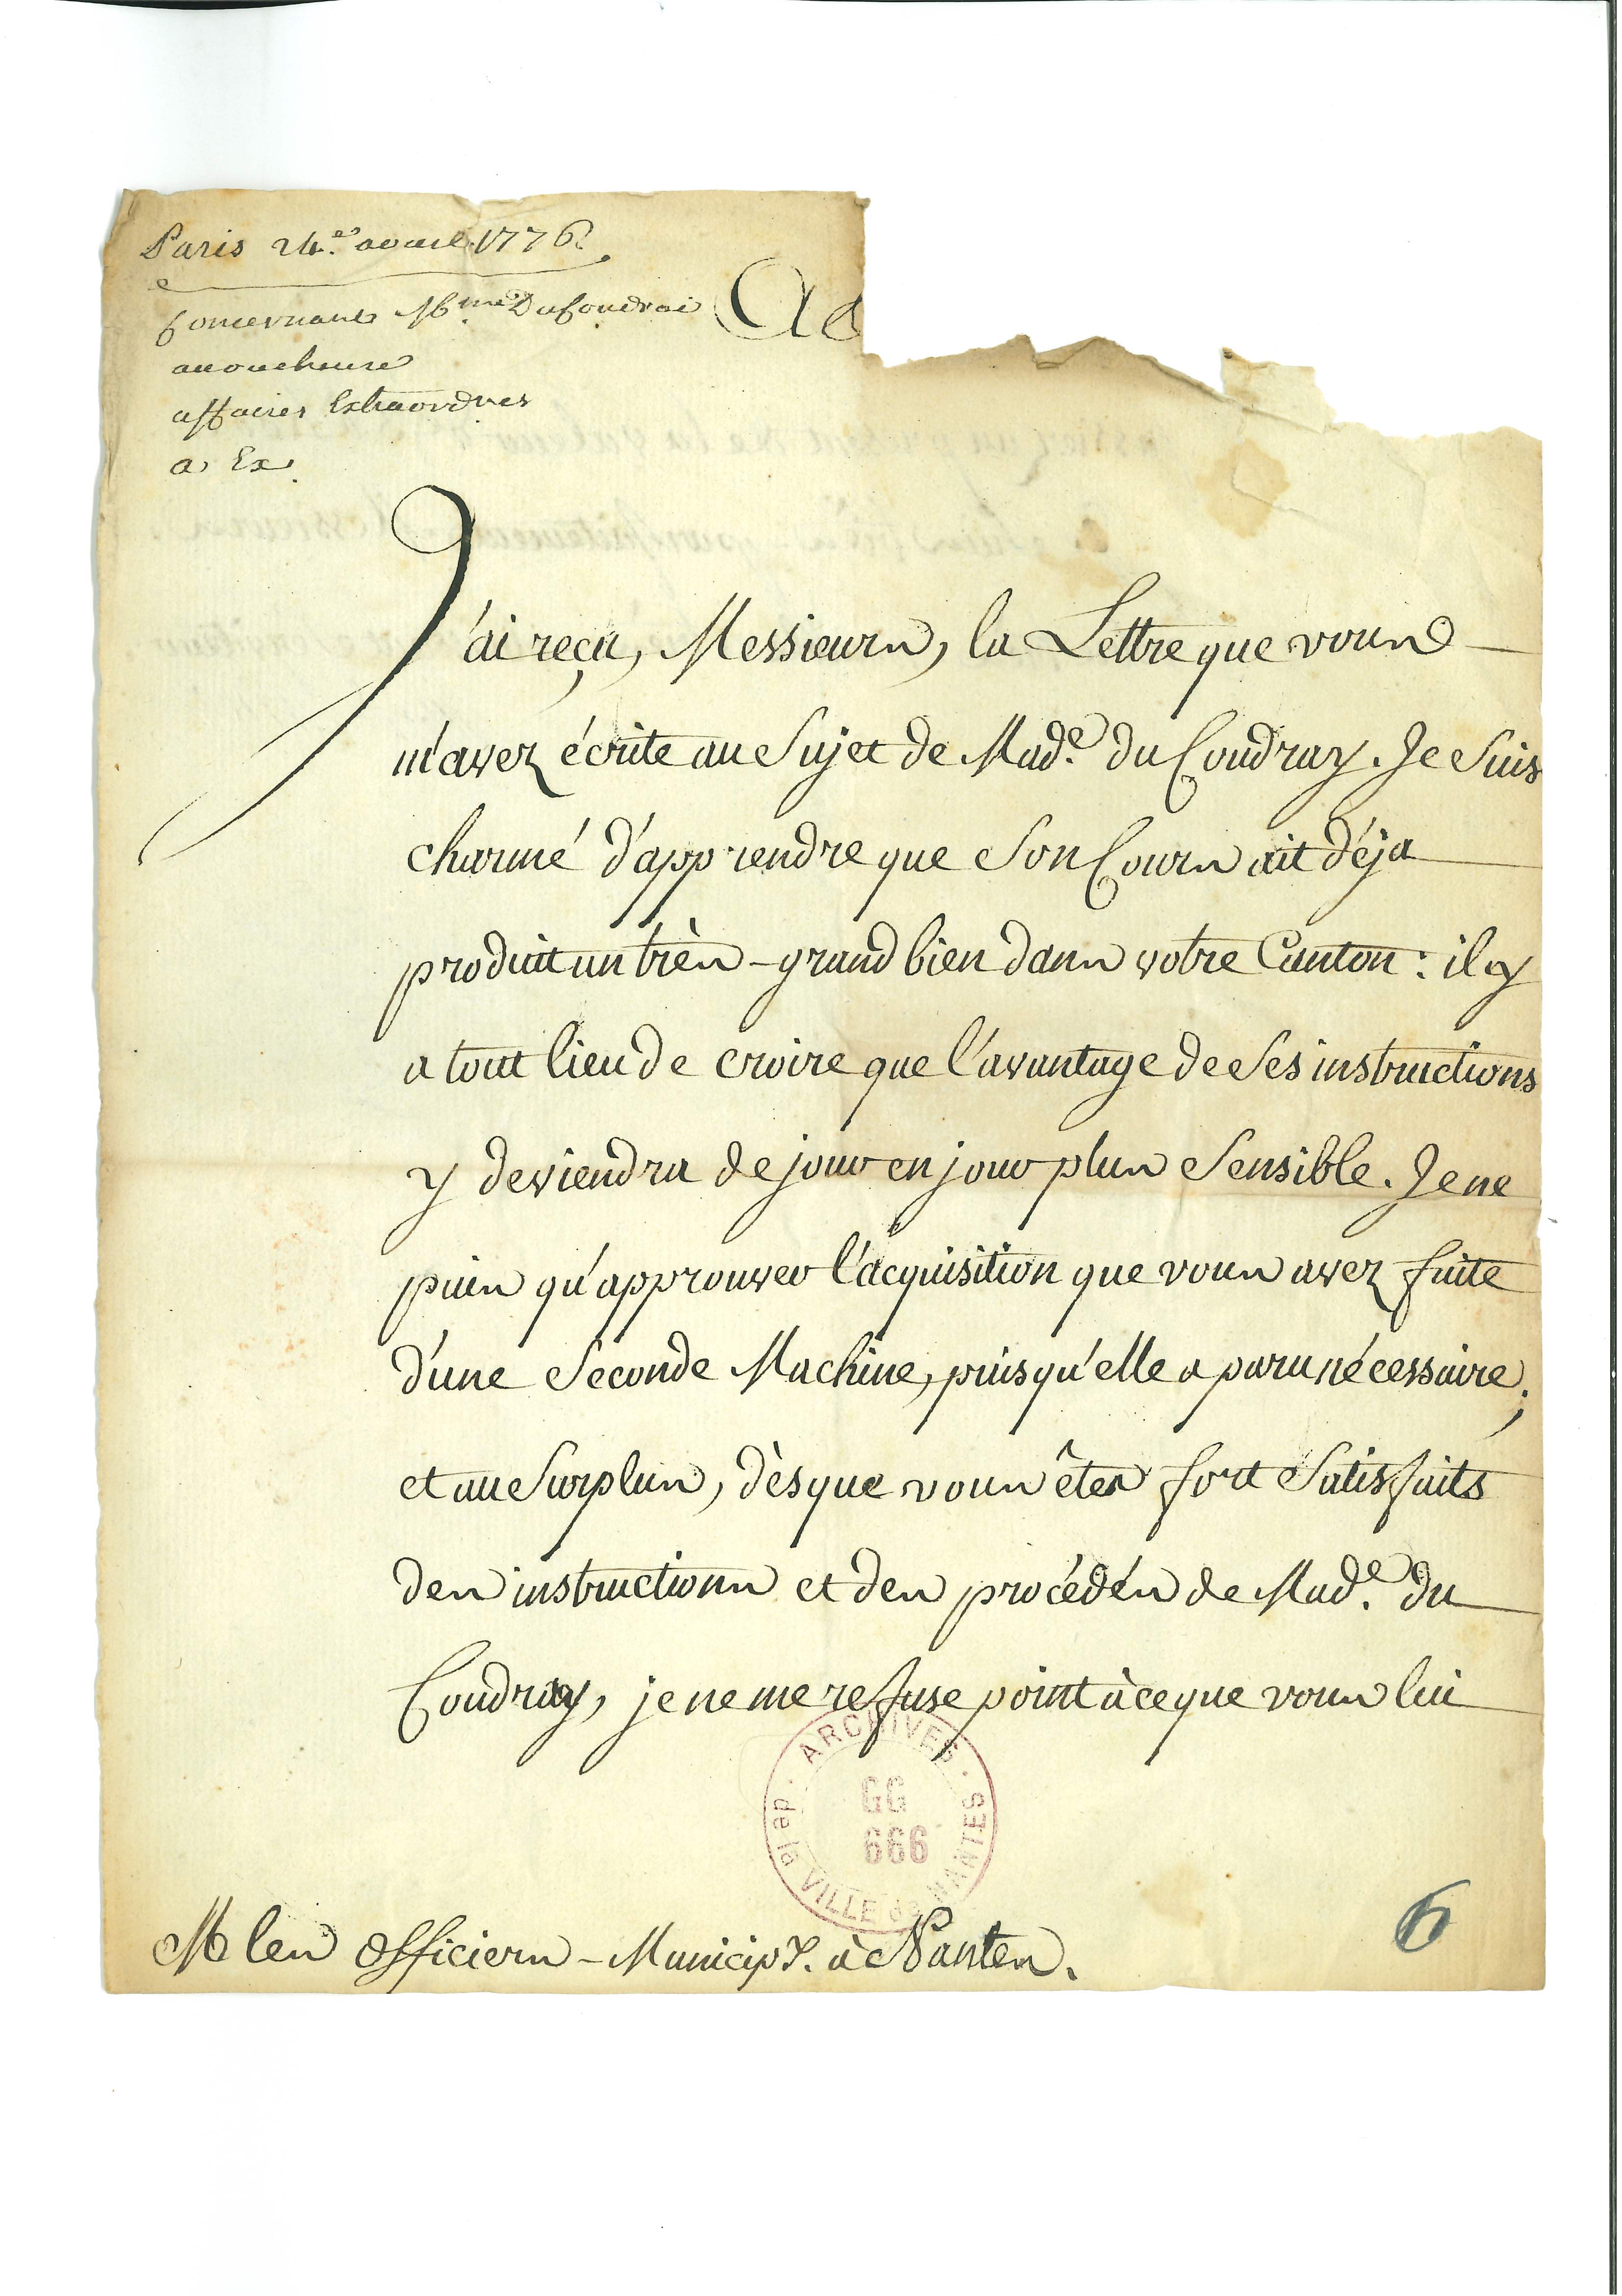 Paris 24.e avril 1776.
Concernant Mme DuCoudrai
accoucheuse
affaires Extraordres
a Ex.
J'ai reçu, Messieurs, la Lettre que vous
m'avez écrite au Sujet de Made. du Coudray. Je Suis
charmé d'apprendre que Son Cours ait déja
produit un très-grand bien dans votre Canton: il y
a tout lieu de croire que l'avantage de Ses instructions
y deviendra de jour en jour plus Sensible. Je ne
puis qu'approuver l'acquisition que vous avez faite
d'une Seconde Machine, puisqu'elle a paru nécessaire;
et au Surplus, dès que vous êtes fort Satisfaits
des instructions et des procédés de Made. du
Coudray, je ne me refuse point à ce que vous lui
ARCHIVES de la VILLE de NANTES
GG
666
6
M les Officiers-Municip.x à Nantes.